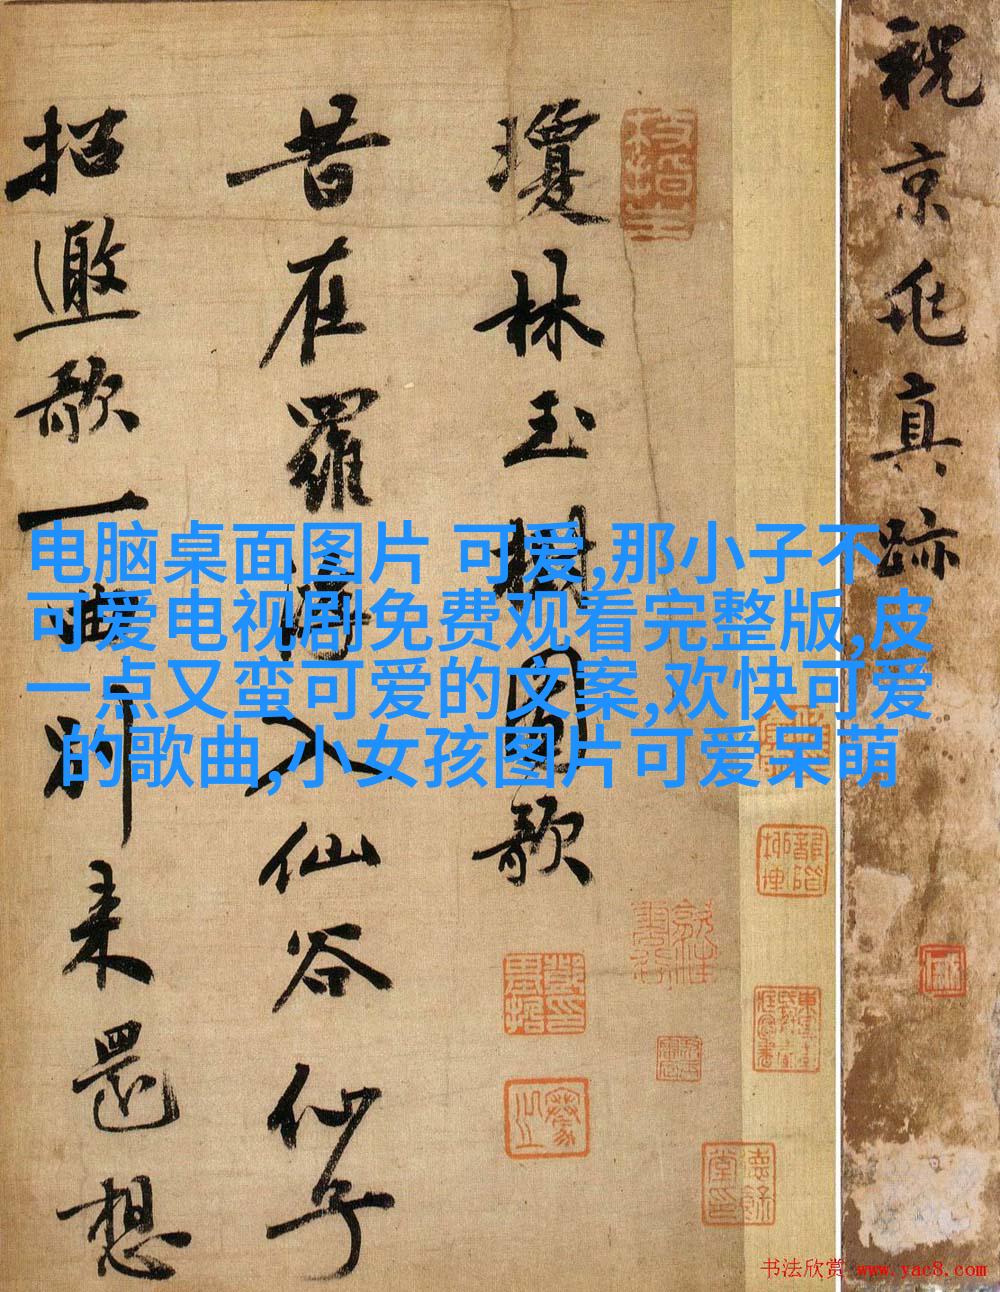 祝京兆真跡
瓊林玉樹圖歌
昔在羅浮入仙谷仙子
招邀歌一曲別来還想
电脑桌面图片 可爱,那小子不
可爱电视剧免费观看完整版,皮
一点又蛮可爱的文案,欢快可爱
的歌曲,小女孩图片可爱呆萌
书法欣赏 www.yac8.com